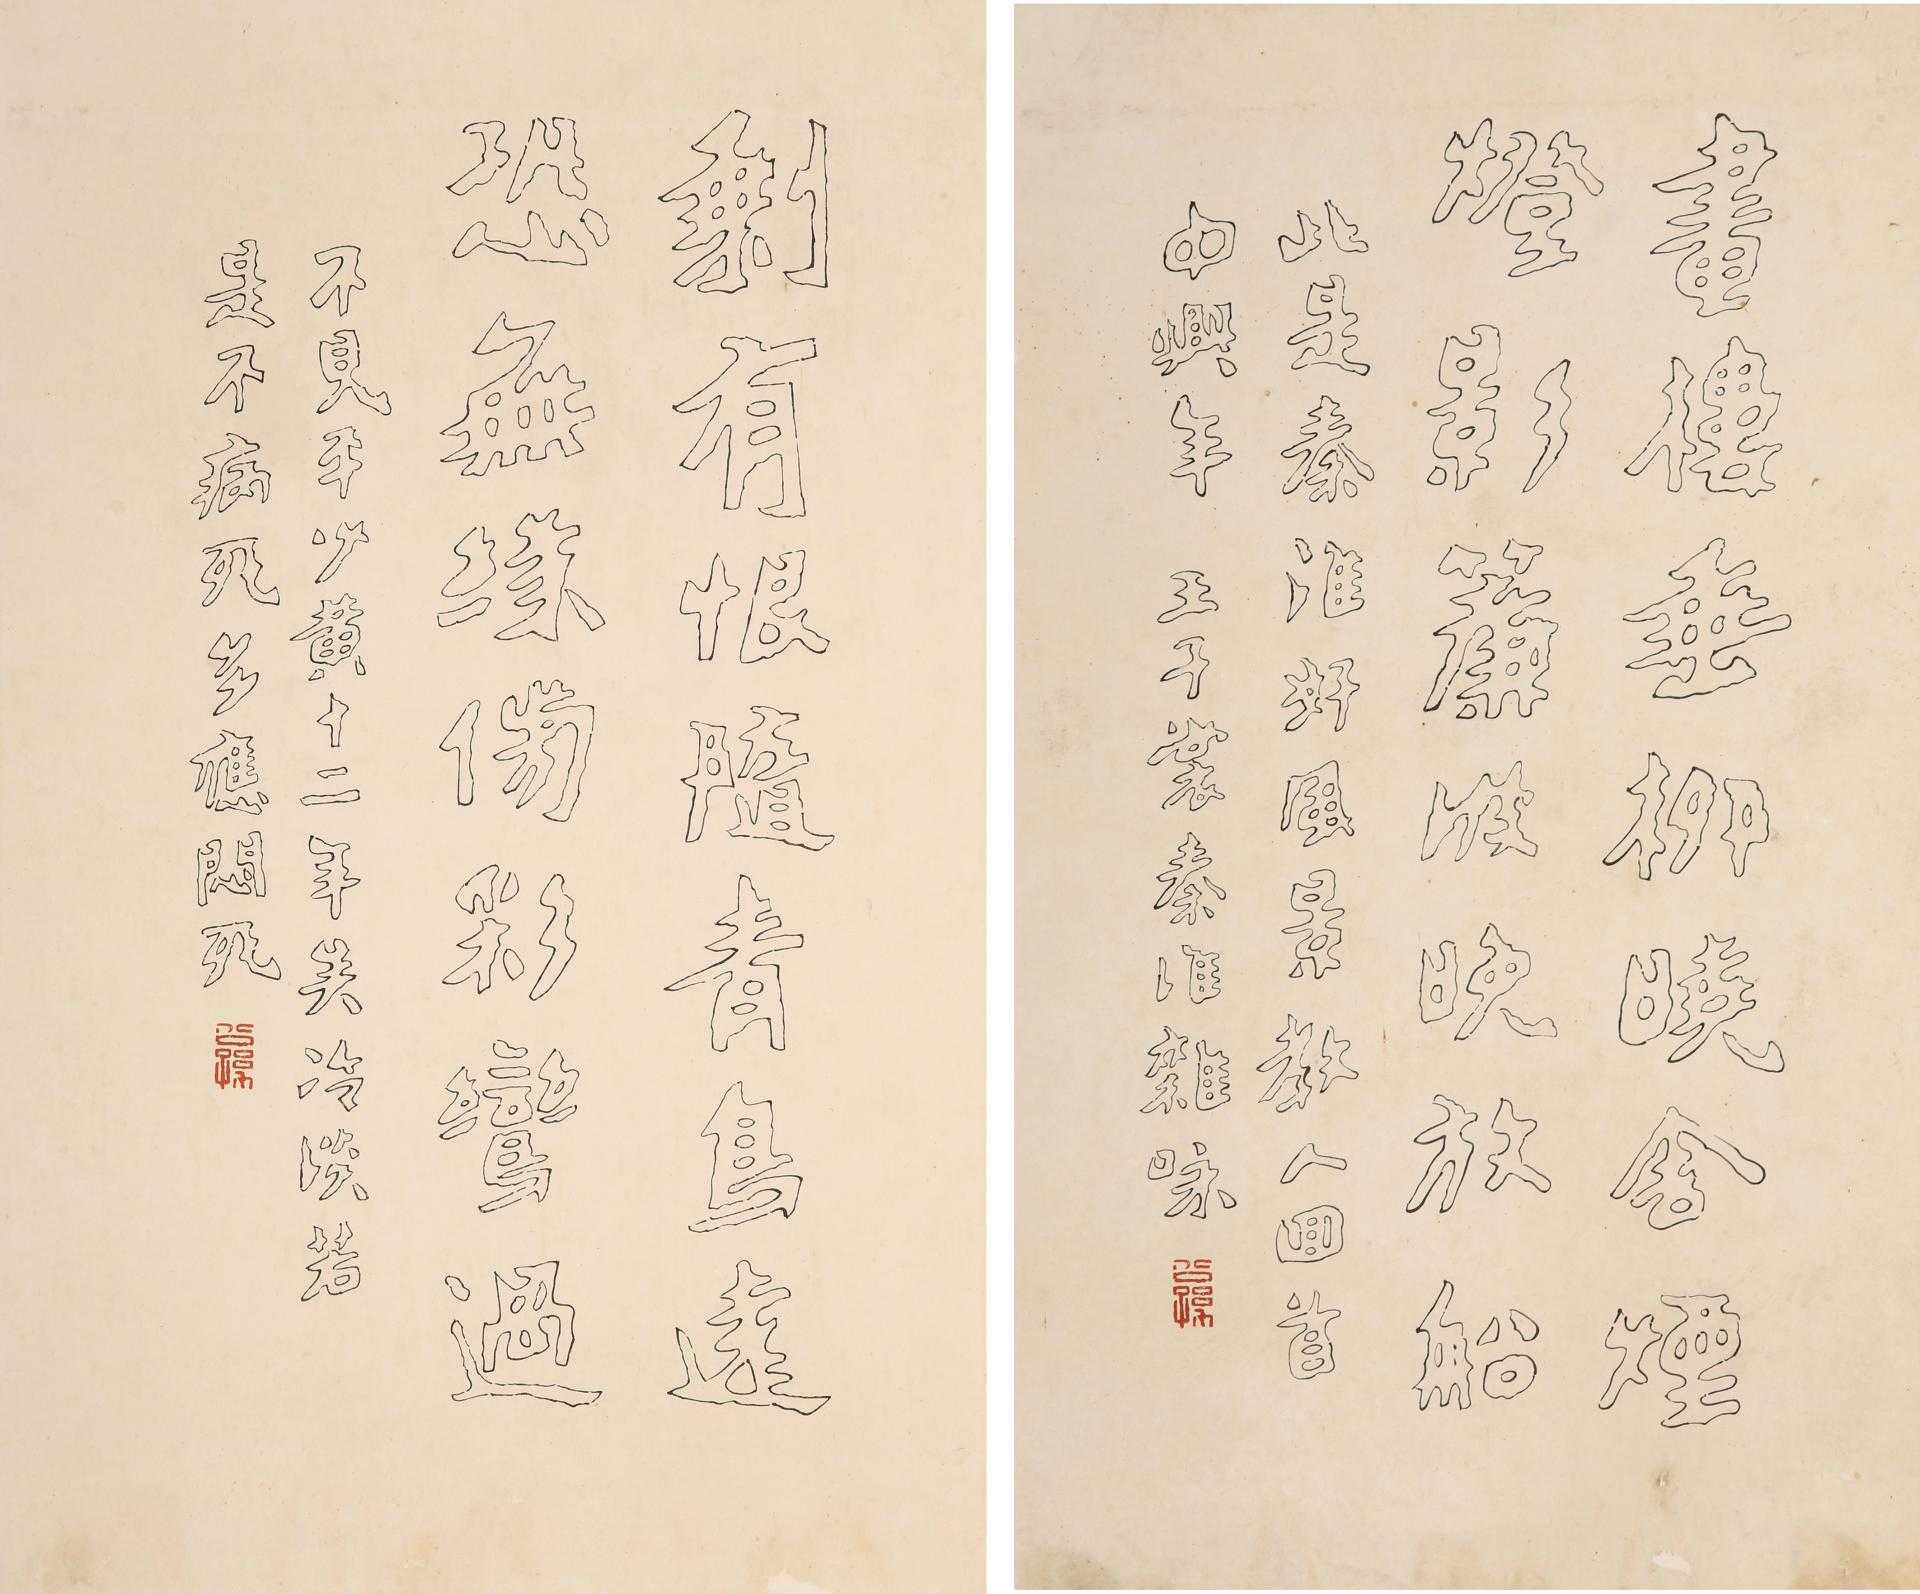 畫樓垂柳曉含煙
燈影簾波晚放船
此是秦淮好風景教人回首
中興年 壬子秦淮雜咏
剩有恨隨青鳥遠
恐無緣傍彩鸞過
不見平少黃十二年矣冷淡若
是不病死多應悶死